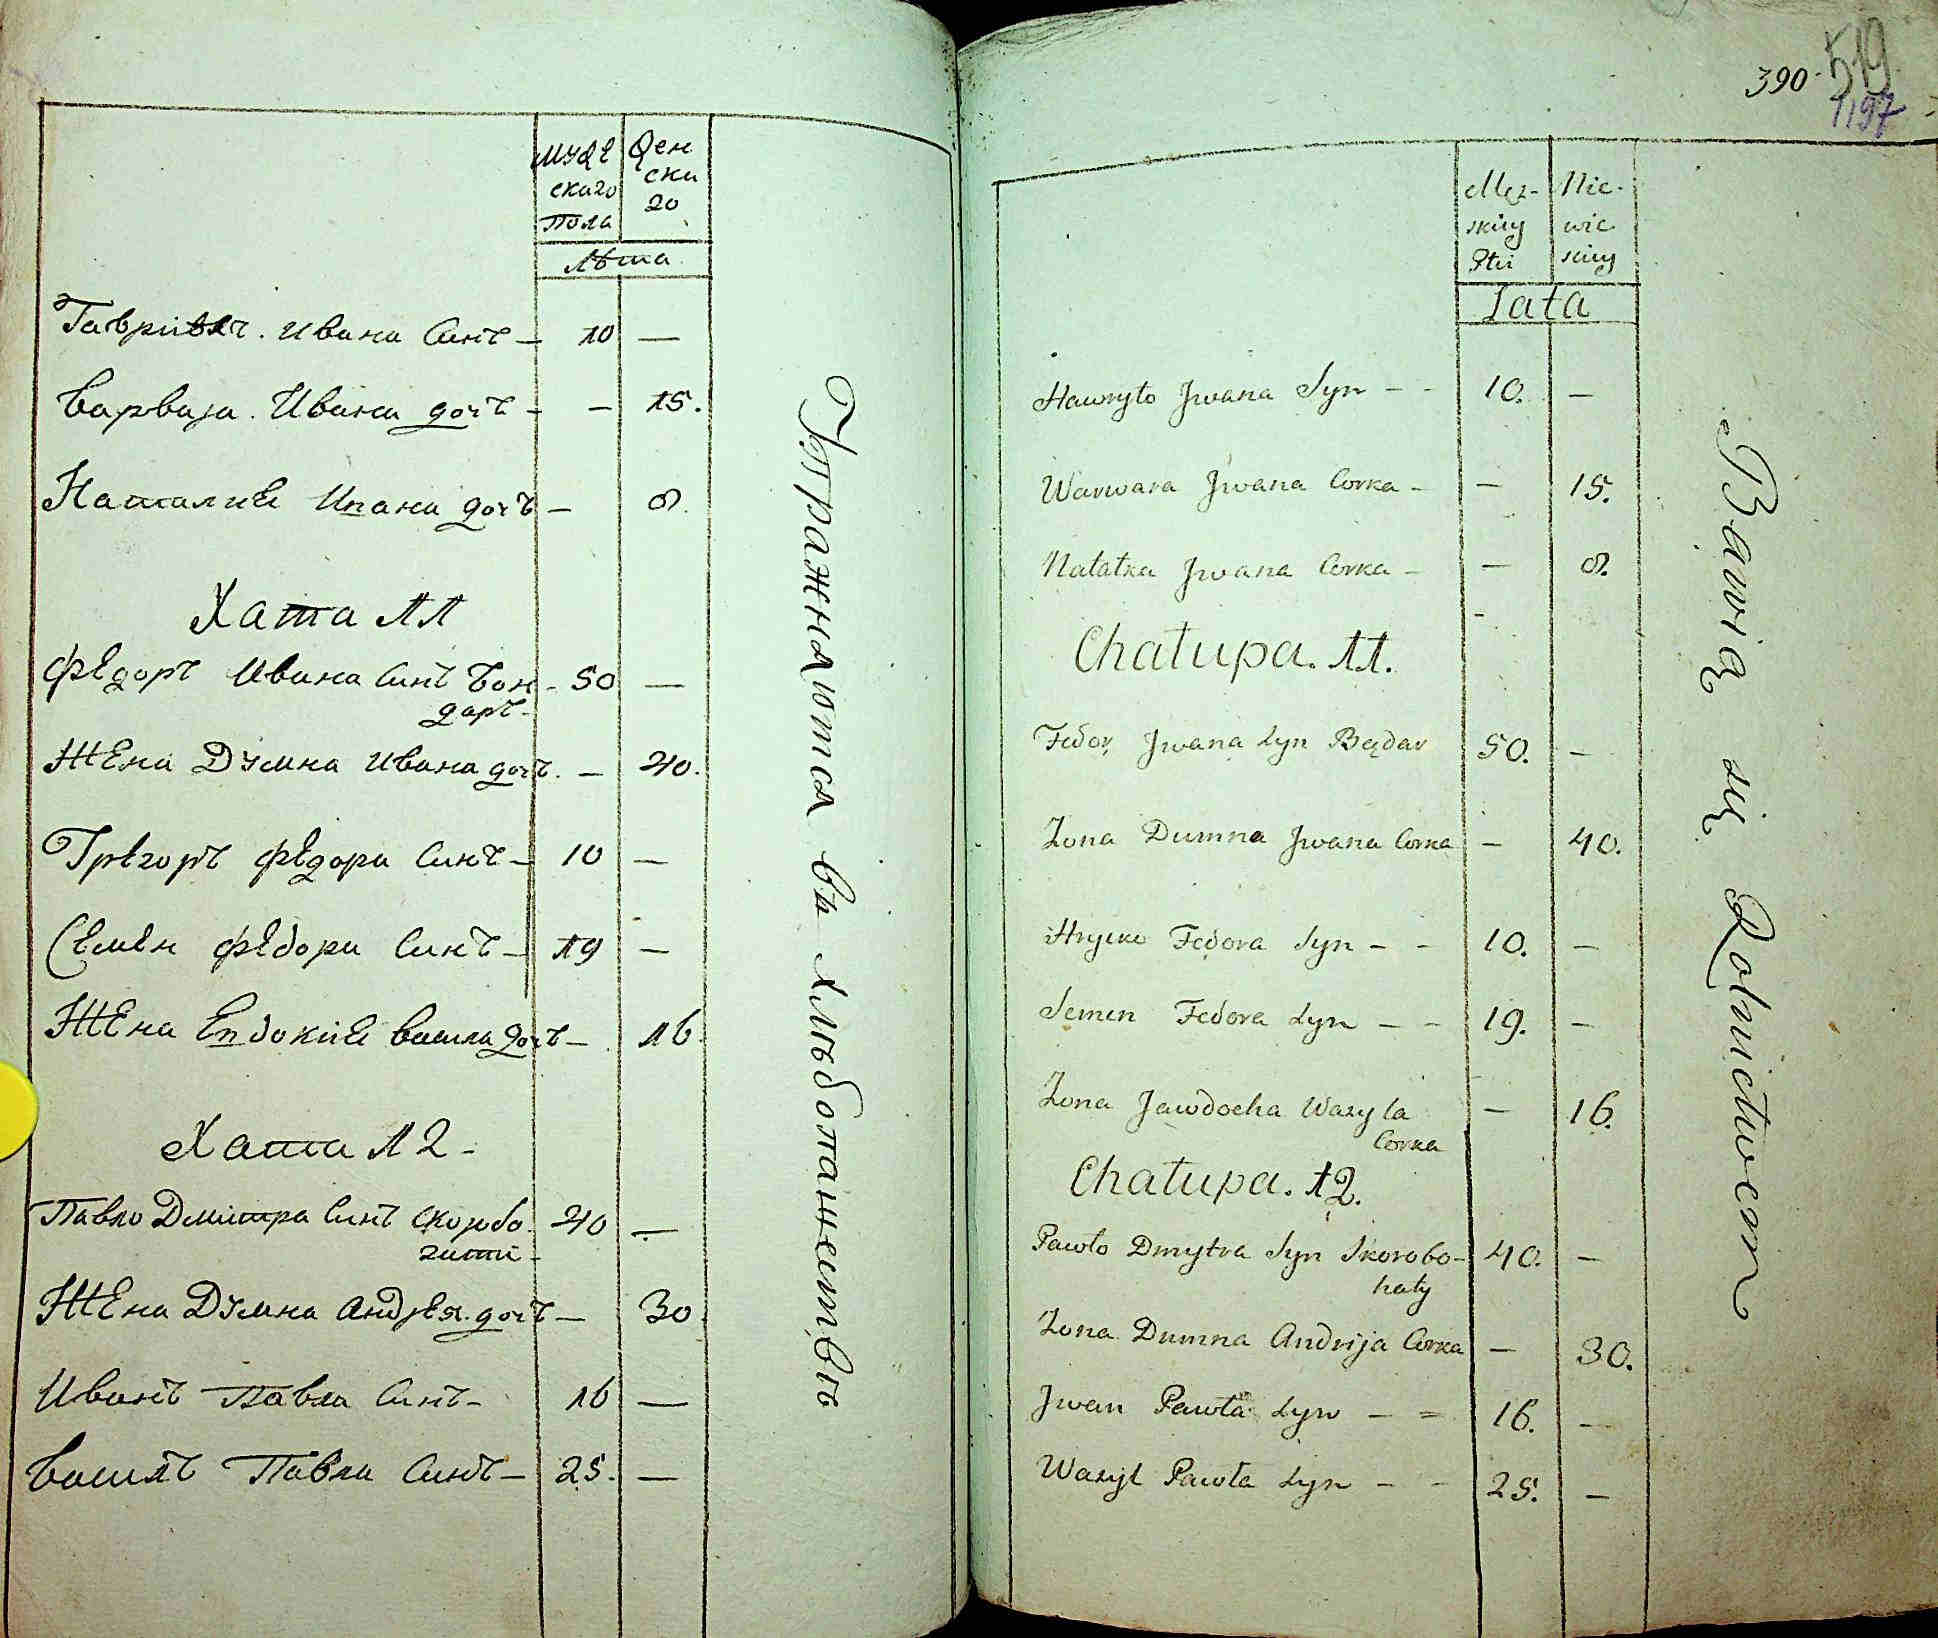 муже
скаго
пола
жен
ска
го
Лѣта
Гаврiилъ. Ивана Синъ — 10 —
Варвара. Ивана дочъ — — 15.
Наталиѣ Ивана дочъ — 8.
Хата 11
Федоръ Ивана Синъ Бон- 50 —
даръ-
Жена Думна Ивана дочъ. — 40.
Грегоръ Федора Синъ — 10 —
Семен Федора Синъ — 19 —
Жена Евдокиѣ Васила дочъ — 16.
Хата 12-
Павло Дмитра Синъ Скоробо- 40 —
гати-
Жена Думна Андрея. дочъ — 30.
Иванъ Павла Синъ- 16 —
Василъ Павла Синъ — 25. —
Упражняются въ хлѣбопашествѣ
390. 519.
1197
Męz-
kiey
Płci
Nie-
wie
skiey
Lata
Hawryło Jwana Syn - - 10. —
Warwara Jwana Corka - — 15.
Natałka Jwana Corka - — 8.
Chałupa. 11.
Fedor Jwana Syn Będar 50. —
Zona Dumna Jwana Corka — 40.
Hryćko Fedora Syn - - 10. —
Semen Fedora Syn - - 19. —
Zona Jawdocha Wasyla — 16.
Corka
Chałupa. 12.
Pawło Dmytra Syn Skorobo- 40. —
haty
Zona Dumna Andrija Corka — 30.
Jwan Pawła Syn - = 16. —
Wasyl Pawła Syn - - 25. —
Bawią się Rolnictwem